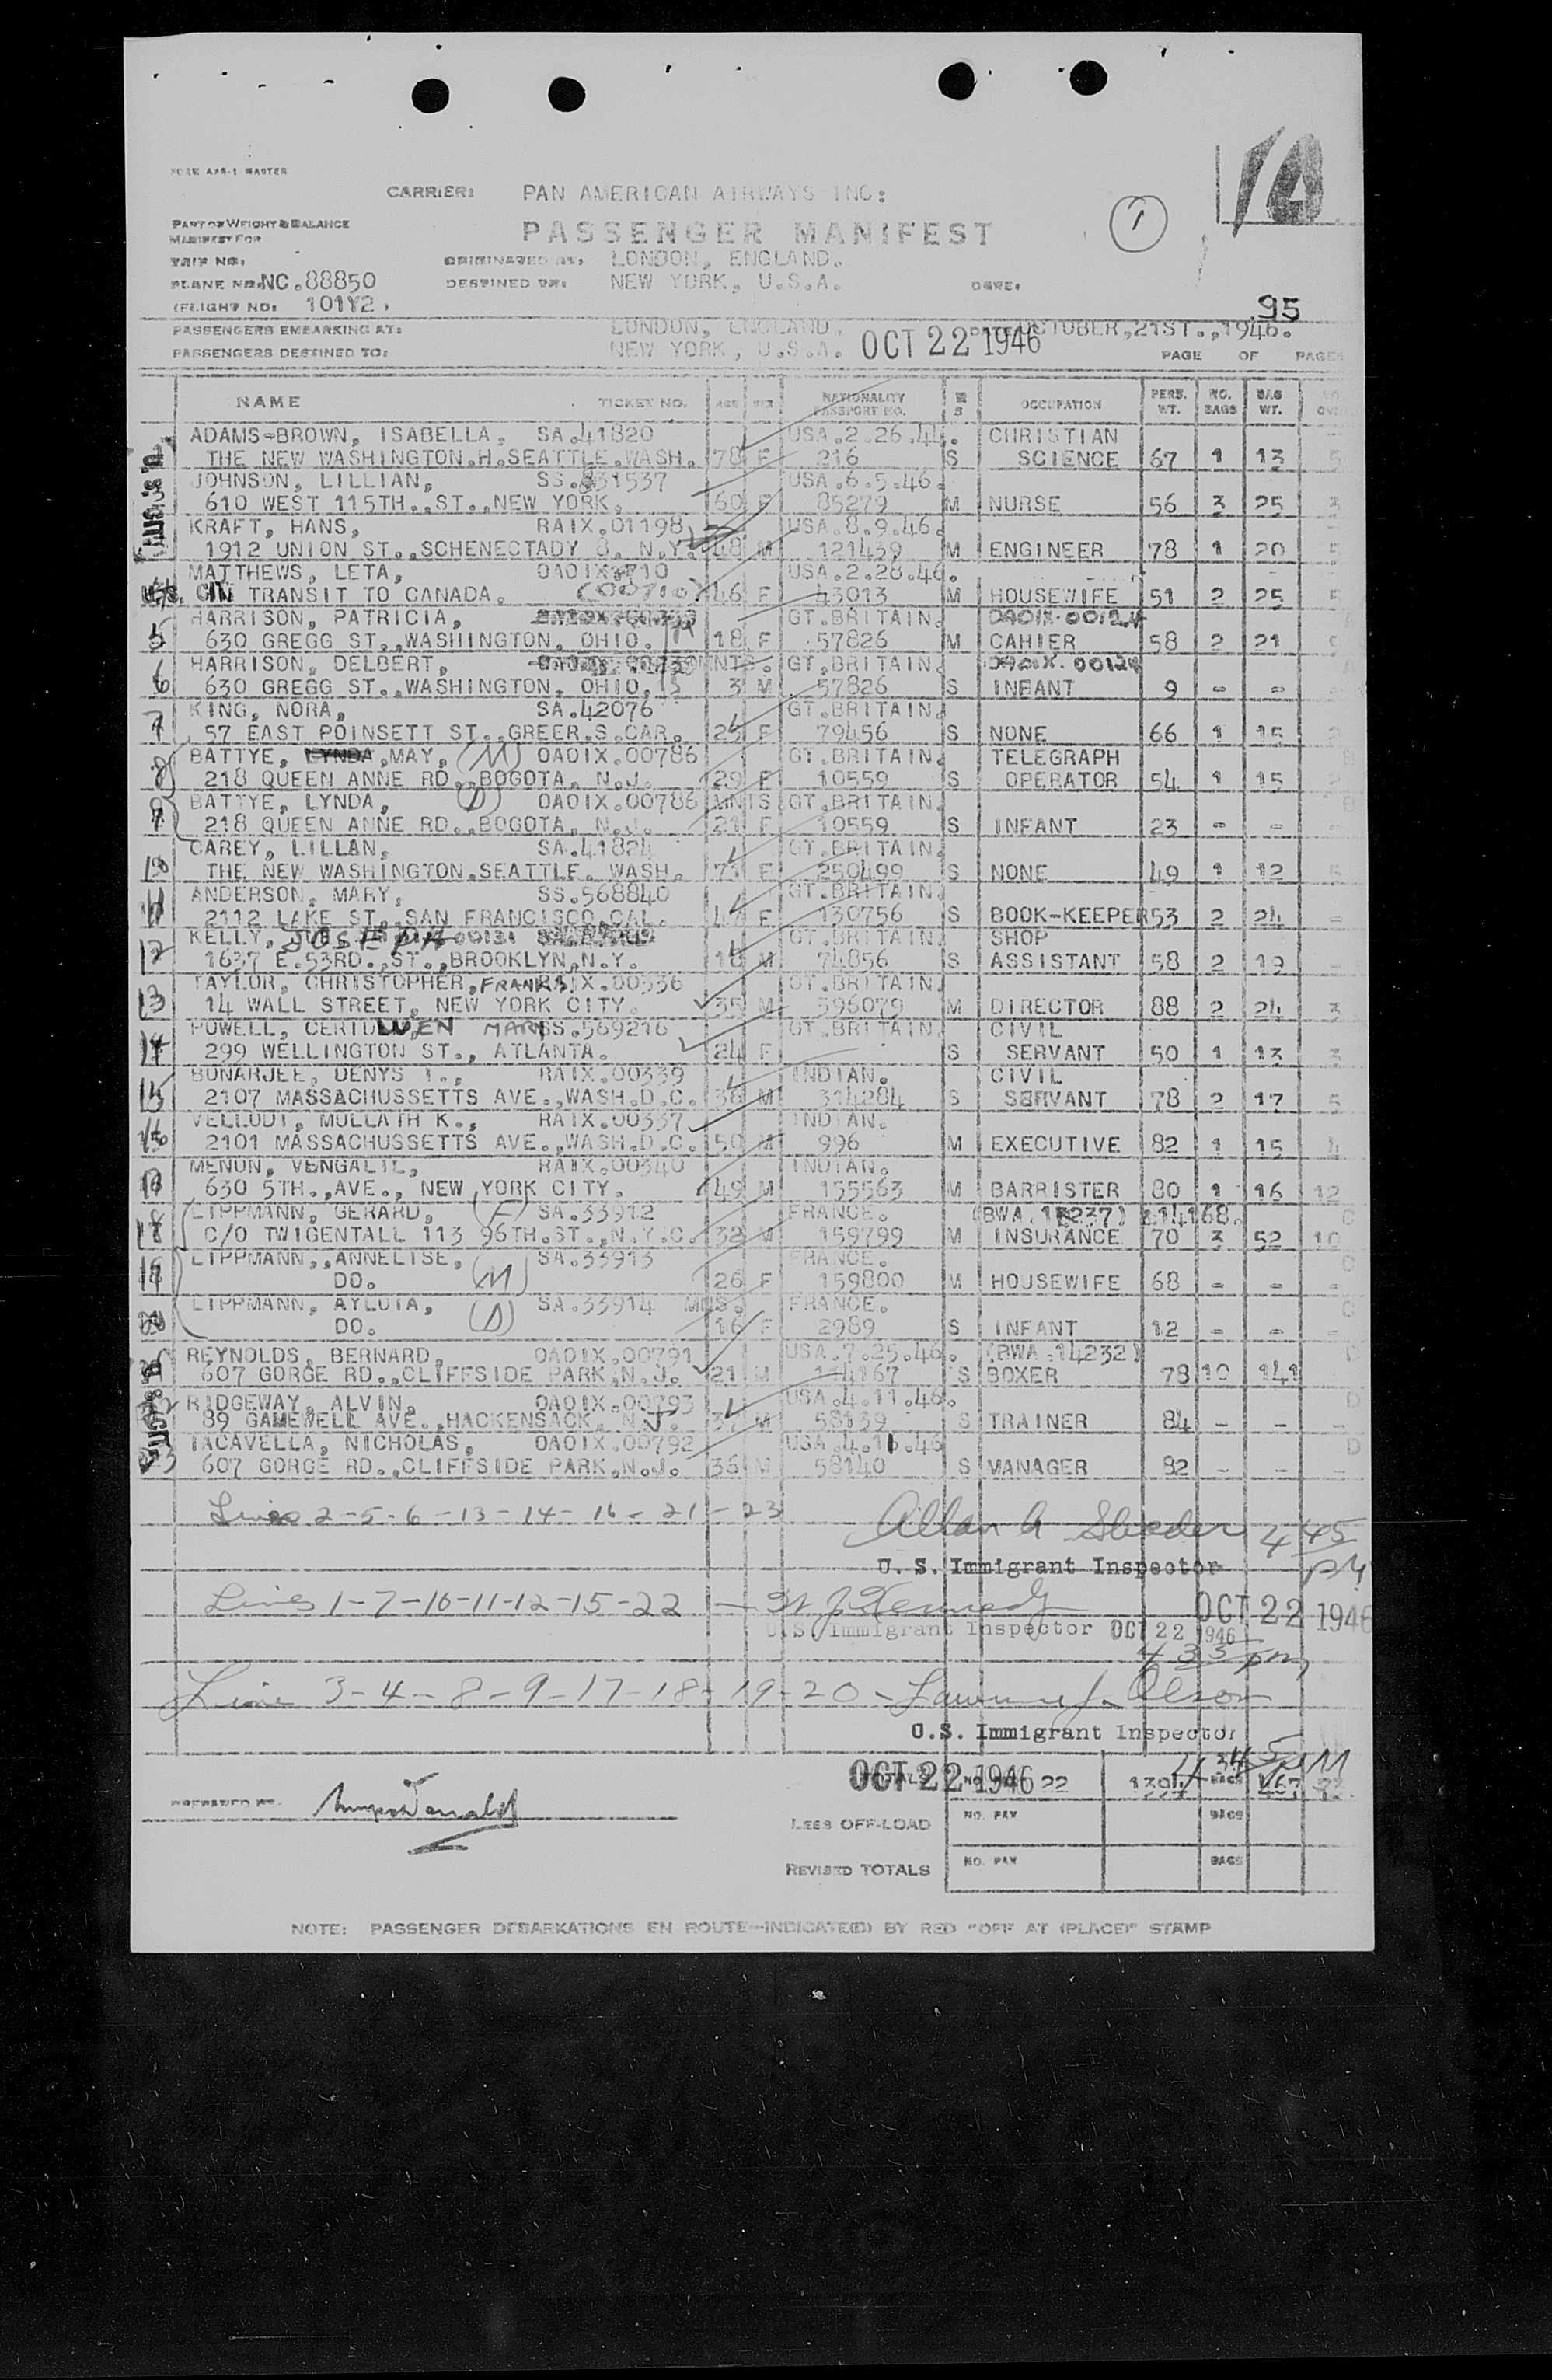 1A
FORM AXB-1 MASTER
CARRIER: PAN AMERICAN AIRWAYS INC:
PART OF WEIGHT & BALANCE
MANIFEST FOR
PASSENGER MANIFEST
1
TRIP NO: ORIGINATED AT: LONDON, ENGLAND.
PLANE NO. NC.88850 DESTINED TO: NEW YORK, U.S.A. DATE:
(FLIGHT NO: 101Y2.
95
PASSENGERS EMBARKING AT: LONDON, ENGLAND. OCTOBER,21ST.,1946.
PASSENGERS DESTINED TO: NEW YORK, U.S.A. OCT 22 1946 PAGE OF PAGES
NAME TICKET NO. AGE SEX NATIONALITY PASSPORT NO. M S OCCUPATION PERS. WT. NO. BAGS BAG WT.
ADAMS-BROWN, ISABELLA, SA.41820 USA.2.26.44. CHRISTIAN
THE NEW WASHINGTON.H.SEATTLE.WASH. 78 F 216 S SCIENCE 67 1 13 5
JOHNSON, LILLIAN, SS.831537 USA.6.5.46.
610 WEST 115TH.,ST.,NEW YORK. 60 F 85279 M NURSE 56 3 25 3
KRAFT, HANS, RAIX.01198 USA.8.9.46.
1912 UNION ST.,SCHENECTADY 8. N.Y. 48 M 121439 M ENGINEER 78 1 20 5
MATTHEWS, LETA, OAOIX.710 USA.2.28.46.
U.S. CIT IN TRANSIT TO CANADA. (00710) 46 F 43013 M HOUSEWIFE 51 2 25 5
HARRISON, PATRICIA, GT.BRITAIN. OAOIX.00124
5 630 GREGG ST.,WASHINGTON. OHIO. M 18 F 57826 M CAHIER 58 2 21
HARRISON, DELBERT, MNTS. GT.BRITAIN. OAOIX.00124
6 630 GREGG ST.,WASHINGTON. OHIO. S 3 M 57826 S INFANT 9 - -
KING, NORA, SA.42076 GT.BRITAIN.
7 57 EAST POINSETT ST.,GREER.S.CAR. 25 F 79456 S NONE 66 1 15 2
BATTYE, LYNDA,MAY, (M) OAOIX.00786 GT.BRITAIN. TELEGRAPH
8 218 QUEEN ANNE RD.,BOGOTA, N.J. 29 F 10559 S OPERATOR 54 1 15 2
BATTYE, LYNDA, (D) OAOIX.00786 MNTS GT.BRITAIN.
9 218 QUEEN ANNE RD.,BOGOTA, N.J. 21 F 10559 S INFANT 23 - - -
CAREY, LILLAN, SA.41824 GT.BRITAIN.
10 THE NEW WASHINGTON.SEATTLE. WASH. 71 F 250499 S NONE 49 1 12 5
ANDERSON, MARY, SS.568840 GT.BRITAIN.
11 2112 LAKE ST.,SAN FRANCISCO.CAL. 47 F 130756 S BOOK-KEEPER 53 2 24 -
KELLY, JOSEPH 00131 GT.BRITAIN. SHOP
12 1637 E.53RD.,ST.,BROOKLYN,N.Y. 18 M 74856 S ASSISTANT 58 2 19 -
TAYLOR, CHRISTOPHER, FRANK RAIX.00336 GT.BRITAIN.
13 14 WALL STREET, NEW YORK CITY. 35 M 396079 M DIRECTOR 88 2 24 3
POWELL, CERIDWEN MARY SS.569216 GT.BRITAIN. CIVIL
14 299 WELLINGTON ST., ATLANTA. 24 F S SERVANT 50 1 13 3
BONARJEE, DENYS T., RAIX.00339 INDIAN. CIVIL
15 2107 MASSACHUSSETTS AVE.,WASH.D.C. 36 M 314284 S SERVANT 78 2 17 5
VELLODI, MULLATH K., RAIX.00337 INDIAN.
16 2101 MASSACHUSSETTS AVE.,WASH.D.C. 50 M 996 M EXECUTIVE 82 1 15 4
MENON, VENGALIL, RAIX.00340 INDIAN.
17 630 5TH.,AVE., NEW YORK CITY. 49 M 155563 M BARRISTER 80 1 16 12
LIPPMANN, GERARD, (F) SA.33912 FRANCE. (BWA.14237) &14168.
18 C/O TWIGENTALL 113 96TH.ST.,N.Y.C. 32 M 159799 M INSURANCE 70 3 52 10
LIPPMANN,,ANNELISE, SA.33913 FRANCE.
19 DO. (M) 26 F 159800 M HOUSEWIFE 68 - - -
LIPPMANN, AYLOTA, (D) SA.33914 MNS. FRANCE.
20 DO. 16 F 2989 S INFANT 12 - - -
REYNOLDS, BERNARD, OAOIX.00791 USA.7.25.46. (BWA.14232)
607 GORGE RD.,CLIFFSIDE PARK,N.J. 21 M 114167 S BOXER 78 10 141
RIDGEWAY, ALVIN, OAOIX.00793 USA.4.11.46.
89 GAMEWELL AVE.,HACKENSACK, N.J. 37 M 58139 S TRAINER 84 - - -
IACAVELLA, NICHOLAS, OAOIX.00792 USA.4.16.46
23 607 GORGE RD.,CLIFFSIDE PARK,N.J. 36 M 58140 S MANAGER 82 - - -
Lines 2-5-6-13-14-16-21-23 Allan A 4 45 PM
U. S. Immigrant Inspector
Lines 1-7-10-11-12-15-22 - W J Kennedy OCT 22 1946
U.S. Immigrant Inspector OCT 22 1946
4 35 pm
Line 3-4-8-9-17-18-19-20 - Lawrence J. Olson
U.S. Immigrant Inspector
4 345 PM
OCT 22 1946 TOTALS 22 1394 BAGS 467
PREPARED BY.
LESS OFF-LOAD NO. PAX BAGS
REVISED TOTALS NO. PAX BAGS
NOTE: PASSENGER DEBARKATIONS EN ROUTE-INDICATE(D) BY RED "OFF AT (PLACE)" STAMP